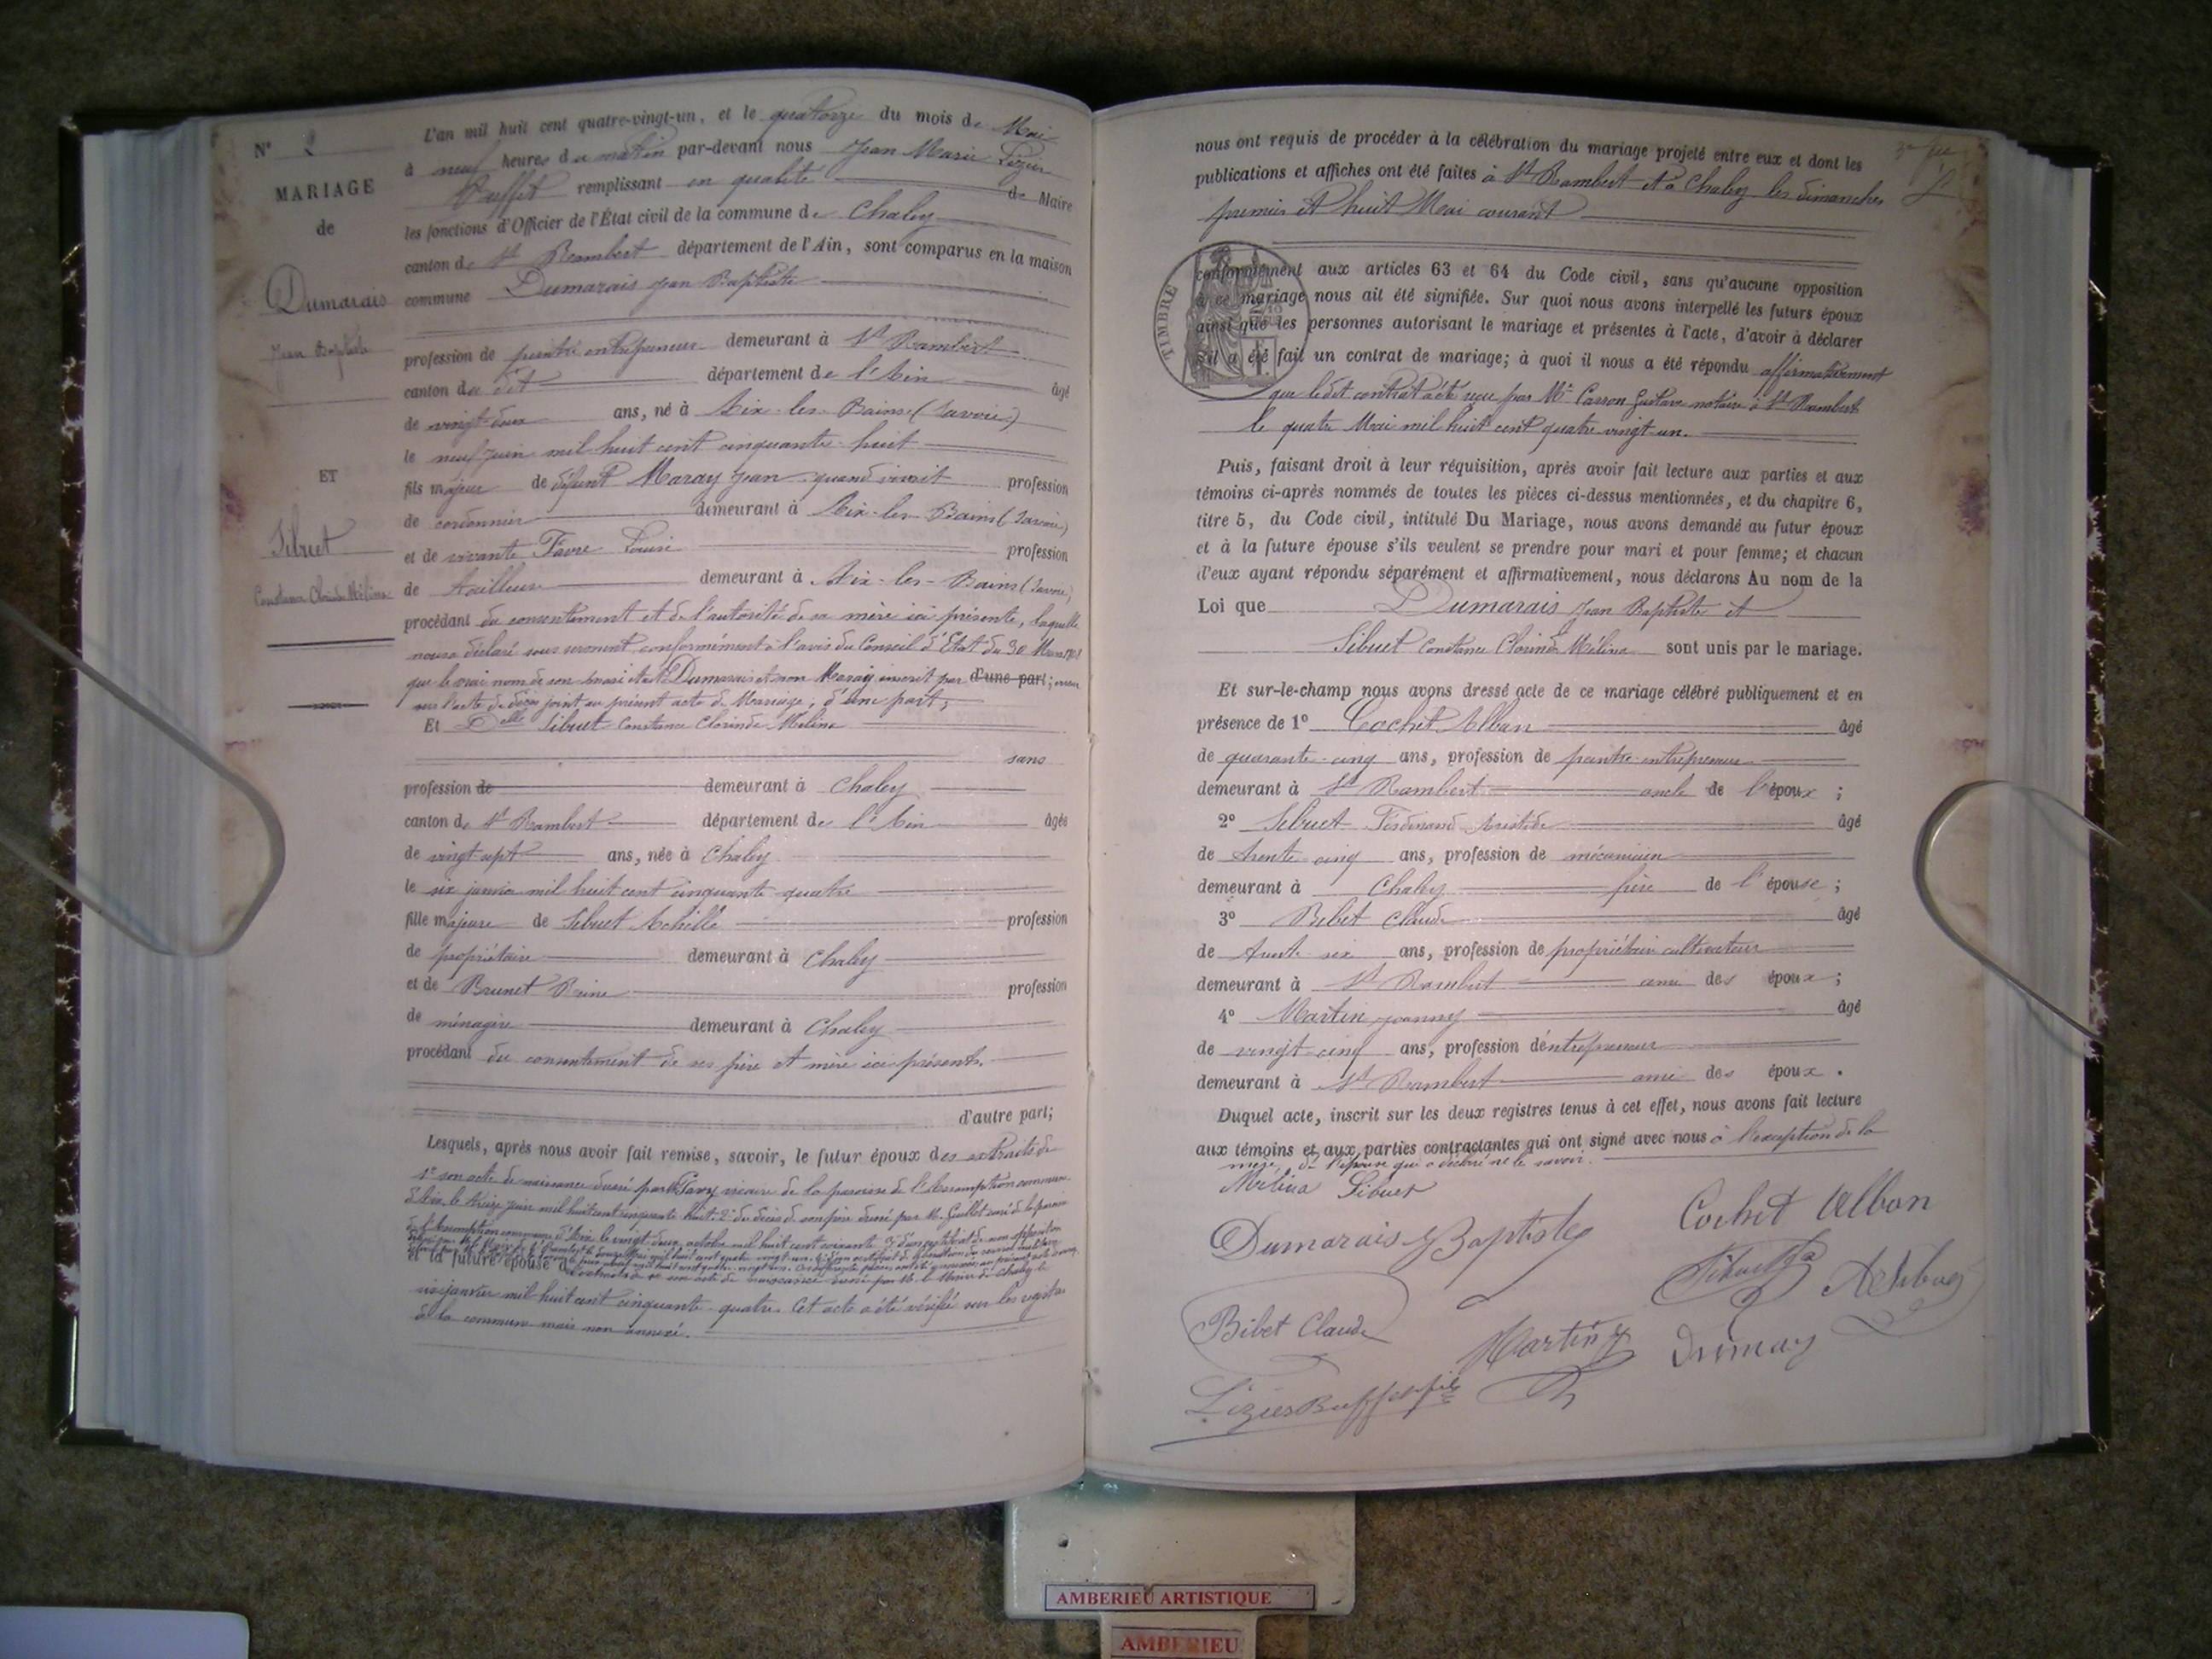 N° 2
MARIAGE
de
Dumarais
Jean Baptiste
ET
Sibuet
Constance Clorinde Mélina
L'an mil huit cent quatre-vingt-un, et le quatorze du mois de Mai
à neuf heures du matin par-devant nous Jean Marie Lizier
Buffet remplissant en qualité de Maire
les fonctions d'Officier de l'État civil de la commune de Chaley
canton de St Rambert département de l'Ain, sont comparus en la maison
commune Dumarais Jean Baptiste
profession de peintre entrepreneur demeurant à St Rambert
canton du dit département de l'Ain âgé
de vingt-deux ans, né à Aix-les-Bains (Savoie)
le neuf Juin mil huit cent cinquante-huit
fils majeur de défunt Maray Jean quand vivait profession
de cordonnier demeurant à Aix-les-Bains (Savoie)
et de vivante Favre Louise profession
de tailleuse demeurant à Aix-les-Bains (Savoie)
procédant du consentement et de l'autorité de sa mère ici présente, laquelle
nous a déclaré sous serment, conformément à l'avis du Conseil d'État du 30 Mars
que le vrai nom de son mari était Dumarais et non Maray inscrit par d'une part; erreur
sur l'acte de décès joint au présent acte de Mariage, d'une part;
Et Delle Sibuet Constance Clorinde Mélina
sans
profession de demeurant à Chaley
canton de St Rambert département de l'Ain âgée
de vingt sept ans, née à Chaley
le six janvier mil huit cent cinquante-quatre
fille majeure de Sibuet Achille profession
de propriétaire demeurant à Chaley
et de Brunet Reine profession
de ménagère demeurant à Chaley
procédant du consentement de ses père et mère ici présents.
d'autre part;
Lesquels, après nous avoir fait remise, savoir, le futur époux des extraits de
1° son acte de naissance dressé par Mr Pavy vicaire de la paroisse de l'Assomption commune
d'Aix le treize Juin mil huit cent cinquante huit. 2° du décès de son père dressé par M. Guillot curé de la paroisse
de l'Assomption commune d'Aix le vingt deux octobre mil huit cent soixante 3° d'un certificat de non opposition
et la future épouse de son acte de naissance dressé par M. le Maire de Chaley le
six janvier mil huit cent cinquante-quatre. Cet acte a été vérifié sur les registres
de la commune mais non annexé.
nous ont requis de procéder à la célébration du mariage projeté entre eux et dont les
publications et affiches ont été faites à St Rambert et à Chaley les dimanches
premier et huit Mai courant
TIMBRE
conformément aux articles 63 et 64 du Code civil, sans qu'aucune opposition
à ce mariage nous ait été signifiée. Sur quoi nous avons interpellé les futurs époux
ainsi que les personnes autorisant le mariage et présentes à l'acte, d'avoir à déclarer
s'il a été fait un contrat de mariage; à quoi il nous a été répondu affirmativement
que ledit contrat a été reçu par Me Carron Gustave notaire à St Rambert
le quatre Mai mil huit cent quatre vingt-un.
Puis, faisant droit à leur réquisition, après avoir fait lecture aux parties et aux
témoins ci-après nommés de toutes les pièces ci-dessus mentionnées, et du chapitre 6,
titre 5, du Code civil, intitulé Du Mariage, nous avons demandé au futur époux
et à la future épouse s'ils veulent se prendre pour mari et pour femme; et chacun
d'eux ayant répondu séparément et affirmativement, nous déclarons Au nom de la
Loi que Dumarais Jean Baptiste et
Sibuet Constance Clorinde Mélina sont unis par le mariage.
Et sur-le-champ nous avons dressé acte de ce mariage célébré publiquement et en
présence de 1° Cochet Alban âgé
de quarante-cinq ans, profession de peintre-entrepreneur
demeurant à St Rambert oncle de l'époux ;
2° Sibuet Ferdinand Aristide âgé
de trente cinq ans, profession de mécanicien
demeurant à Chaley frère de l'épouse ;
3° Bibet Claude âgé
de trente six ans, profession de propriétaire cultivateur
demeurant à St Rambert ami des époux ;
4° Martin Joanny âgé
de vingt cinq ans, profession d'entrepreneur
demeurant à St Rambert ami des époux .
Duquel acte, inscrit sur les deux registres tenus à cet effet, nous avons fait lecture
aux témoins et aux parties contractantes qui ont signé avec nous à l'exception de la
mère de l'épouse qui a déclaré ne le savoir.
Mélina Sibuet
Dumarais Baptiste
Cochet Albon
Bibet Claude
Martin J
Dumay
Lizier Buffet fils
AMBERIEU ARTISTIQUE
AMBERIEU